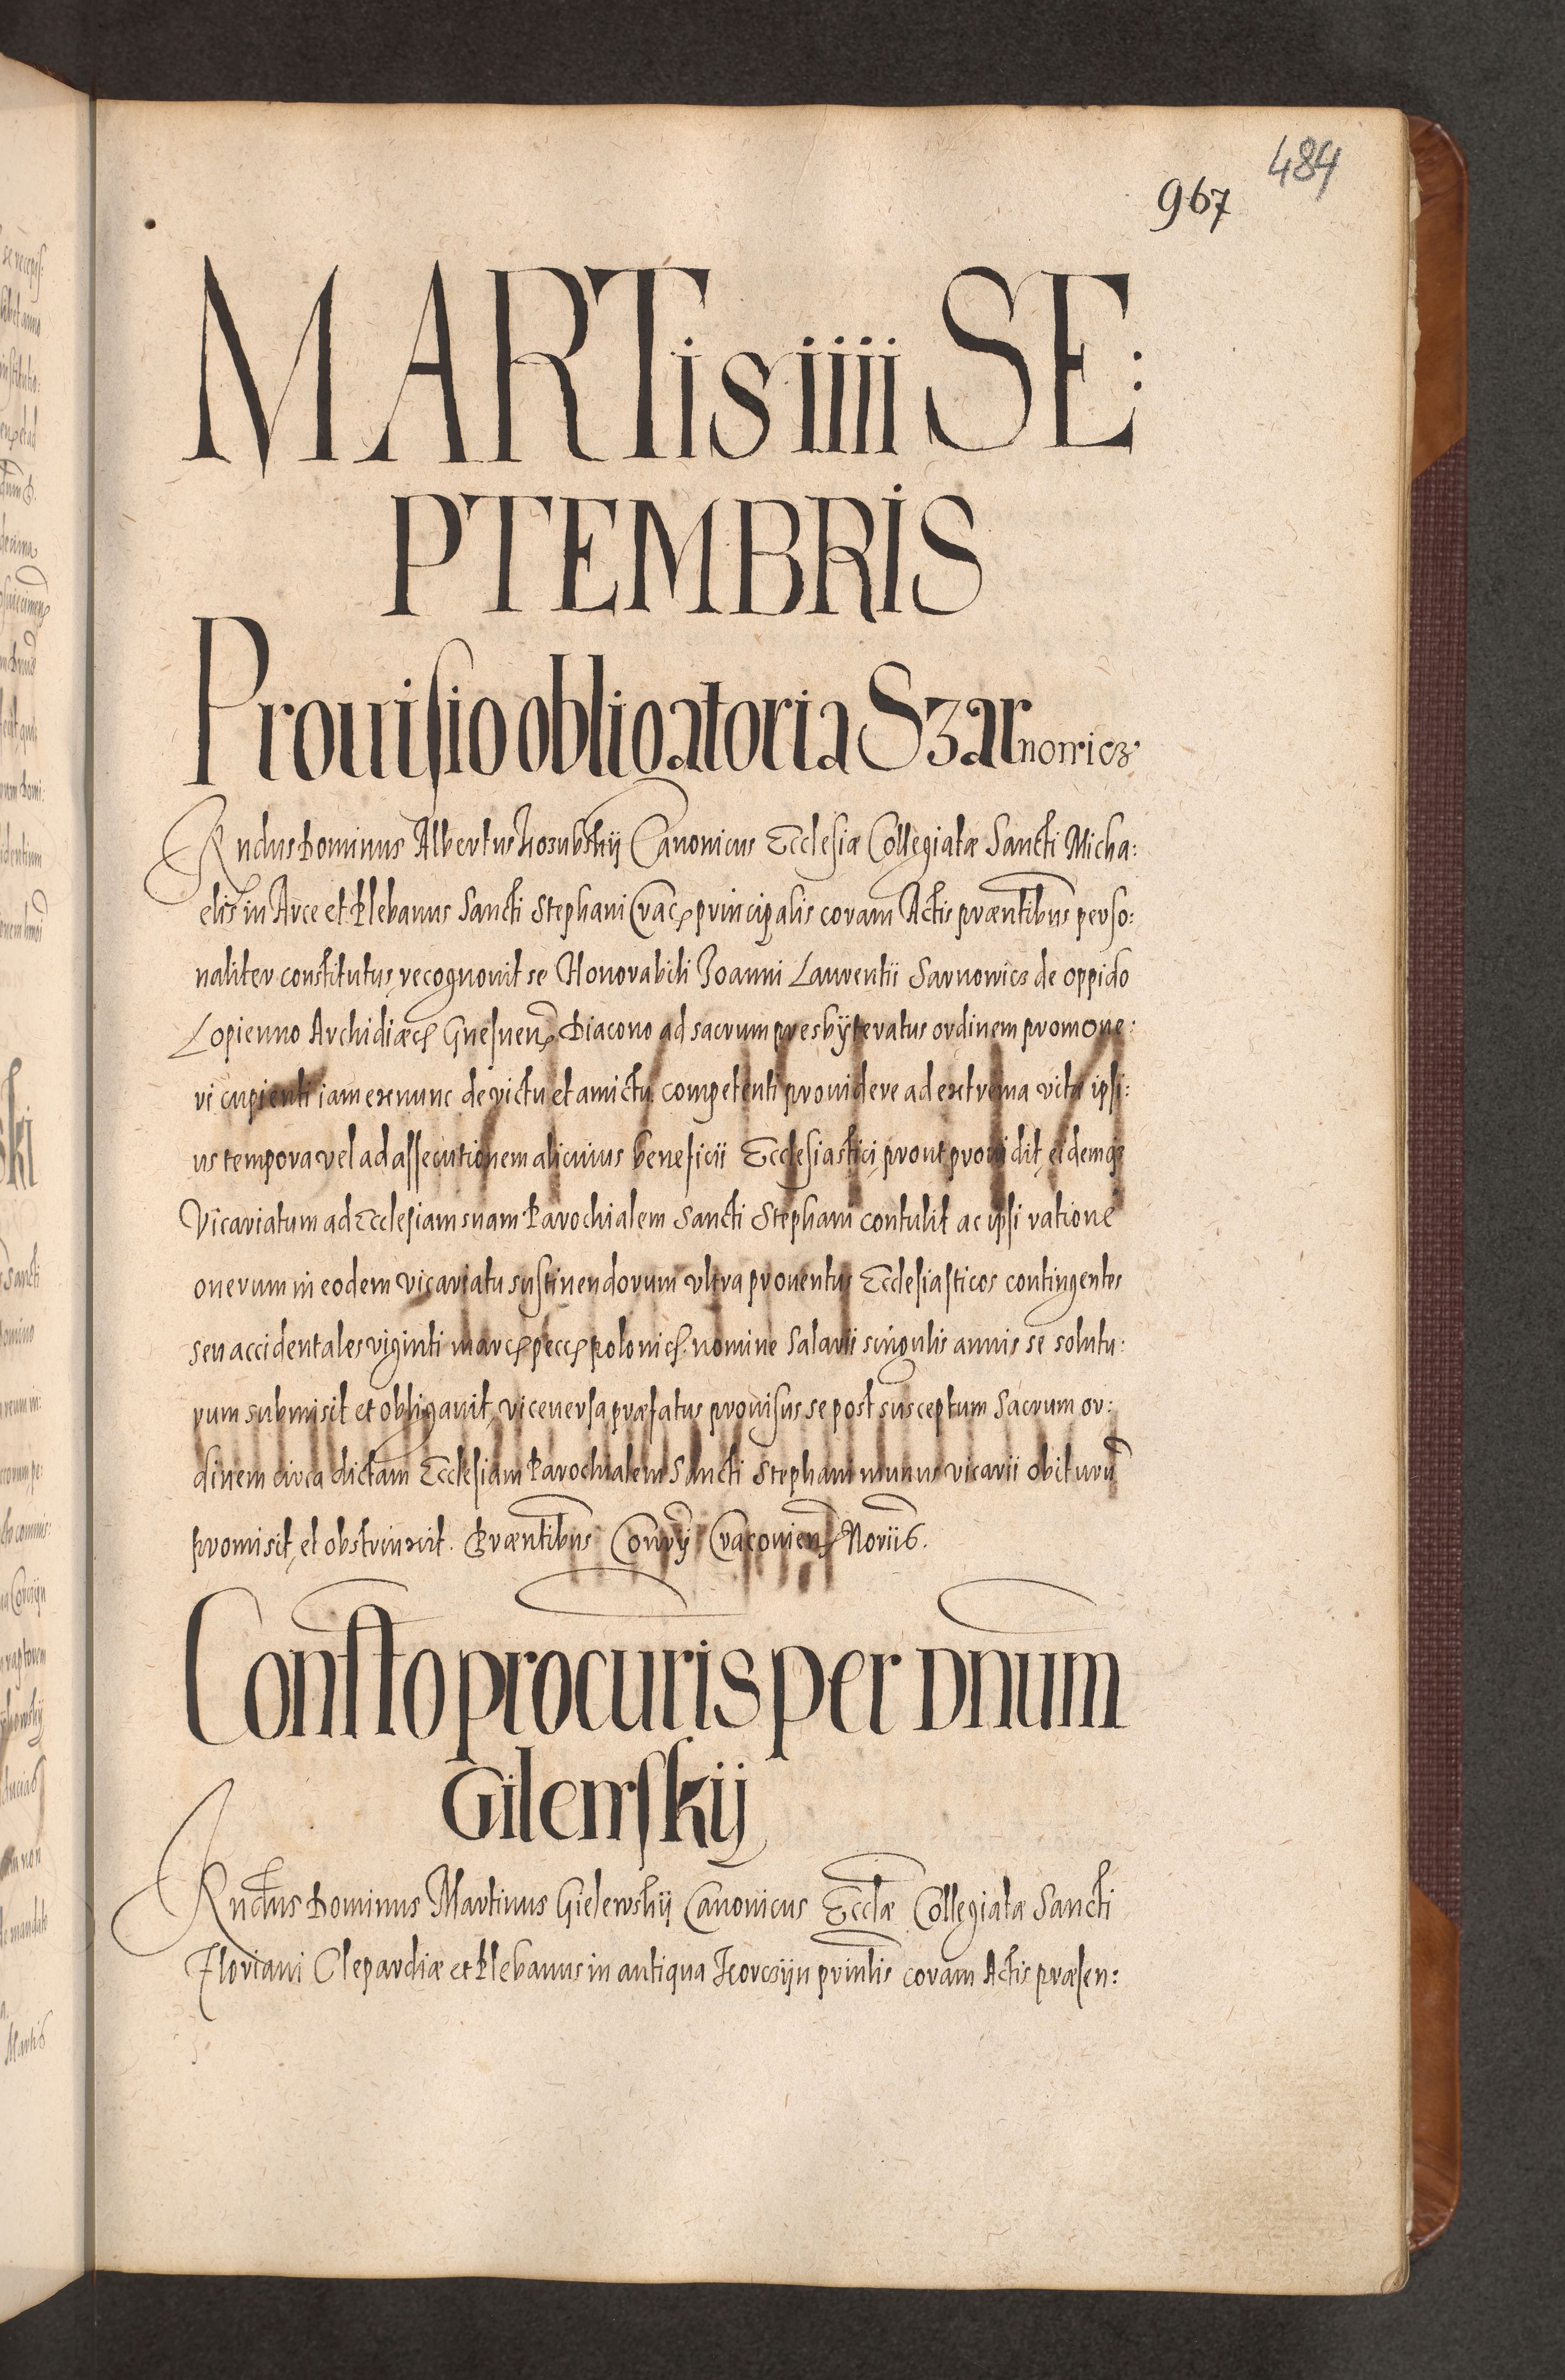 484
967
MARTis iiii SE:
PTEMBRIS
Prouisio obligatoria Szarnowicz
Rndus Dominus Albertus Kozubskij Canonicus Ecclesiæ Collegiatæ Sancti Micha:
elis in Arce et Plebanus Sancti Stephani Crac principalis coram Actis præntibus perso:
naliter constitutus, recognouit se Honorabili Joanni Laurentii Sarnowicz de oppido
Lopienno Archidiæc Gnesnen Diacono ad sacrum presbÿteratus ordinem promoue:
ri cupienti iam ex nunc de victu et amictu competenti prouidere ad extrema vitæ ipsi:
us tempora vel ad assecutionem alicuius beneficii Ecclesiastici, prout prouidit, eidemq
Vicariatum ad Ecclesiam suam Parochialem Sancti Stephani contulit ac ipsi ratione
onerum in eodem vicariatu sustinendorum vltra prouentus Ecclesiasticos contingentes
seu accidentales viginti marc pecc polonic. nomine Salarii singulis annis se solutu:
rum submisit et obligauit, viceuersa præfatus prouisus se post susceptum Sacrum or:
dinem circa dictam Ecclesiam Parochialem Sancti Stephani munus vicarii obiturũ
promisit, et obstrinxit. Præntibus Conrÿ Cracouien Noriis.
Constto procuris per Dnum
Gilewskij
Rndus Dominus Martinus Gielewskij Canonicus Ecclæ Collegiatæ Sancti
Floriani Clepardiæ et Plebanus in antiqua Korczÿn prinlis coram Actis præsen: